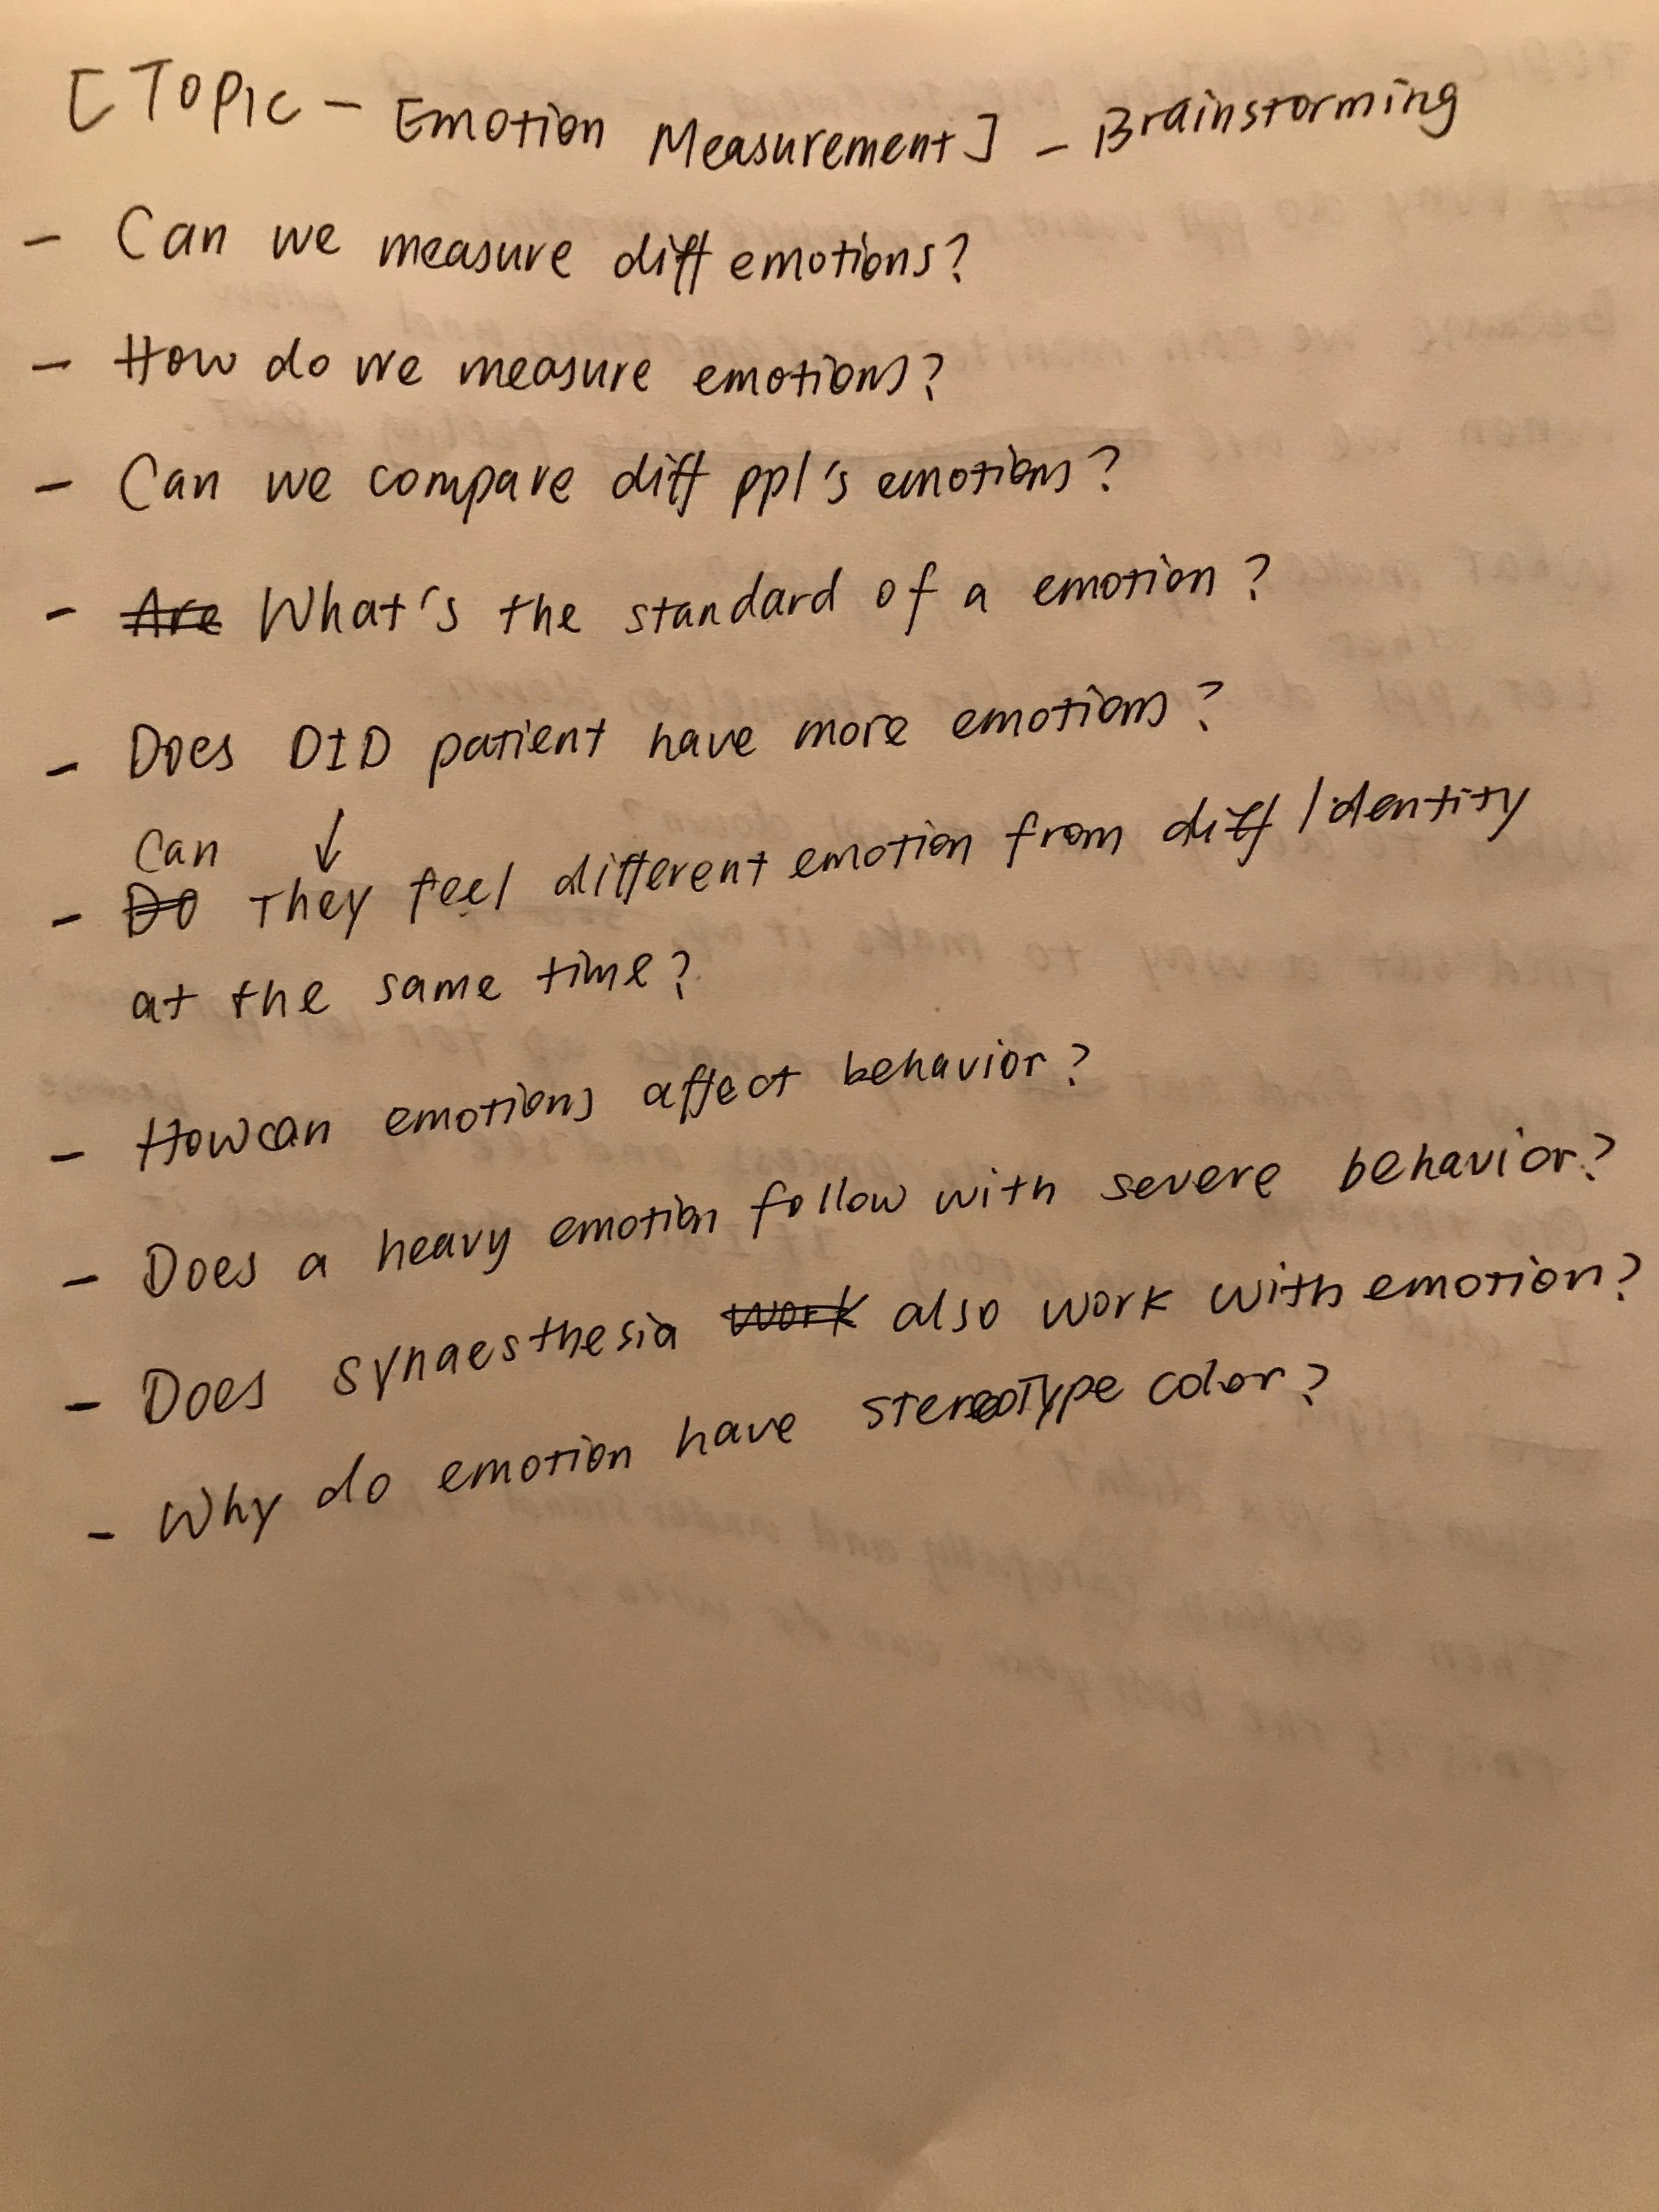 [Topic - Emotion Measurement] - Brainstorming
- Can we measure diff emotions?
- How do we measure emotions?
- Can we compare diff ppl's emotions?
- Are What's the standard of a emotion?
- Does DID patient have more emotions?
Can ↓
- Do They feel different emotion from diff identity
at the same time?
- How can emotions affect behavior?
- Does a heavy emotion follow with severe behavior?
- Does synaesthesia work also work with emotion?
- Why do emotion have stereotype color?